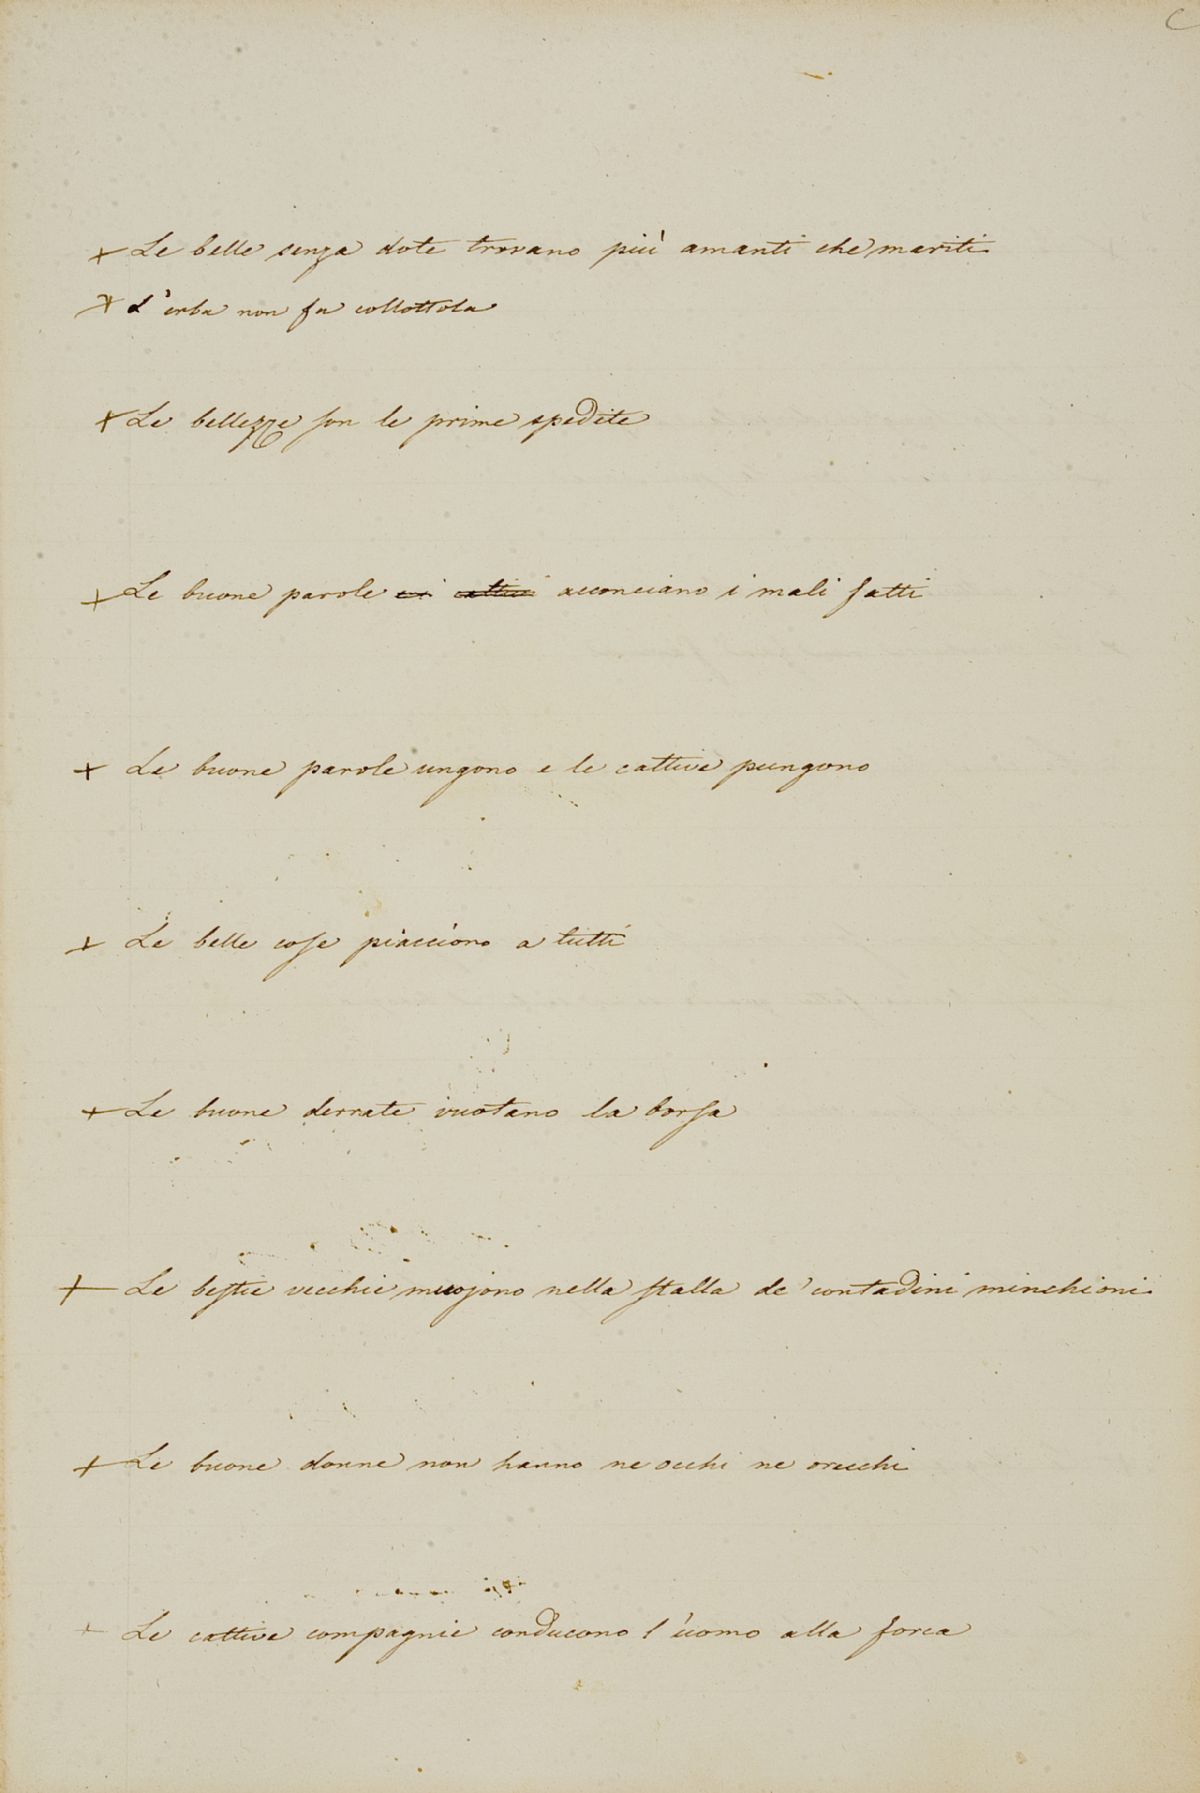 C
+ Le belle senza dote trovano più amanti che mariti
+ L'erba non fa collottola
+ Le bellezze son le prime spedite
+ Le buone parole acconciano i mali fatti
+ Le buone parole ungono e le cattive pungono
+ Le belle cose piacciono a tutti
+ Le buone derrate vuotano la borsa
+ Le bestie vecchie muojono nella stalla de' contadini minchioni
+ Le buone donne non hanno ne occhi ne orecchi
+ Le cattive compagnie conducono l'uomo alla forca